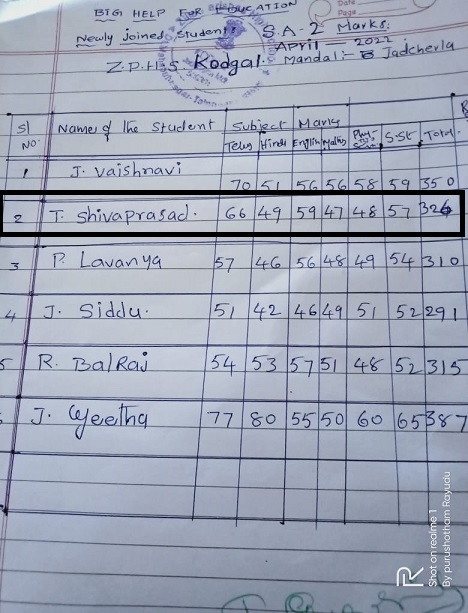 BIG HELP FOR EDUCATION
Newly joined students S.A-2 Marks.
April - 2022
Z.P.H.S. Kodgal. Mandal:- Jadcherla
Date
Page
Sl No. Name of the Student Subject Marks
Telugu Hindi English Maths Phy-Scien S.St Total.
1 J. Vaishnavi 70 51 56 56 58 59 350
2 T. Shivaprasad. 66 49 59 47 48 57 326
3 P. Lavanya 57 46 56 48 49 54 310
4 J. Siddu. 51 42 46 49 51 52 291
5 R. BalRaj 54 53 57 51 48 52 315
J. Geetha 77 80 55 50 60 65 387
Shot on realme 1
By purushotham Rayudu